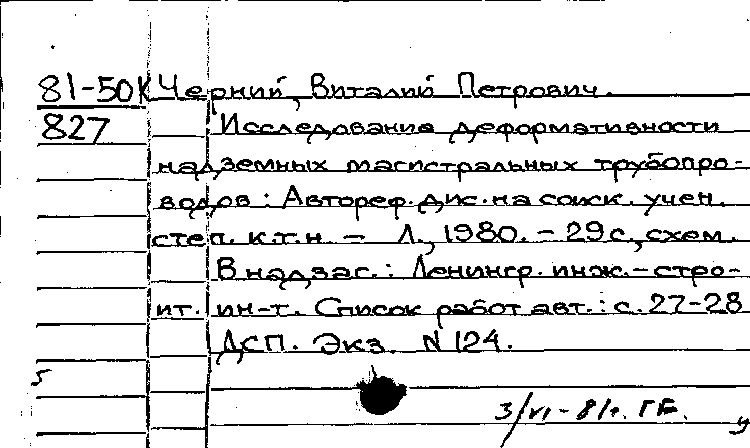 81-50к Черний, Виталий Петрович.
827 Исследование деформативности
надземных магистральных трубопро-
водов: Автореф. дис. на соиск. учен.
степ. к.т.н. – Л., 1980. – 29с., схем.
В надзаг.: Ленингр. инж.-стро-
ит. ин-т. Список работ авт.: с. 27-28
ДСП. Экз. N 124.
5
3/VI-81г.